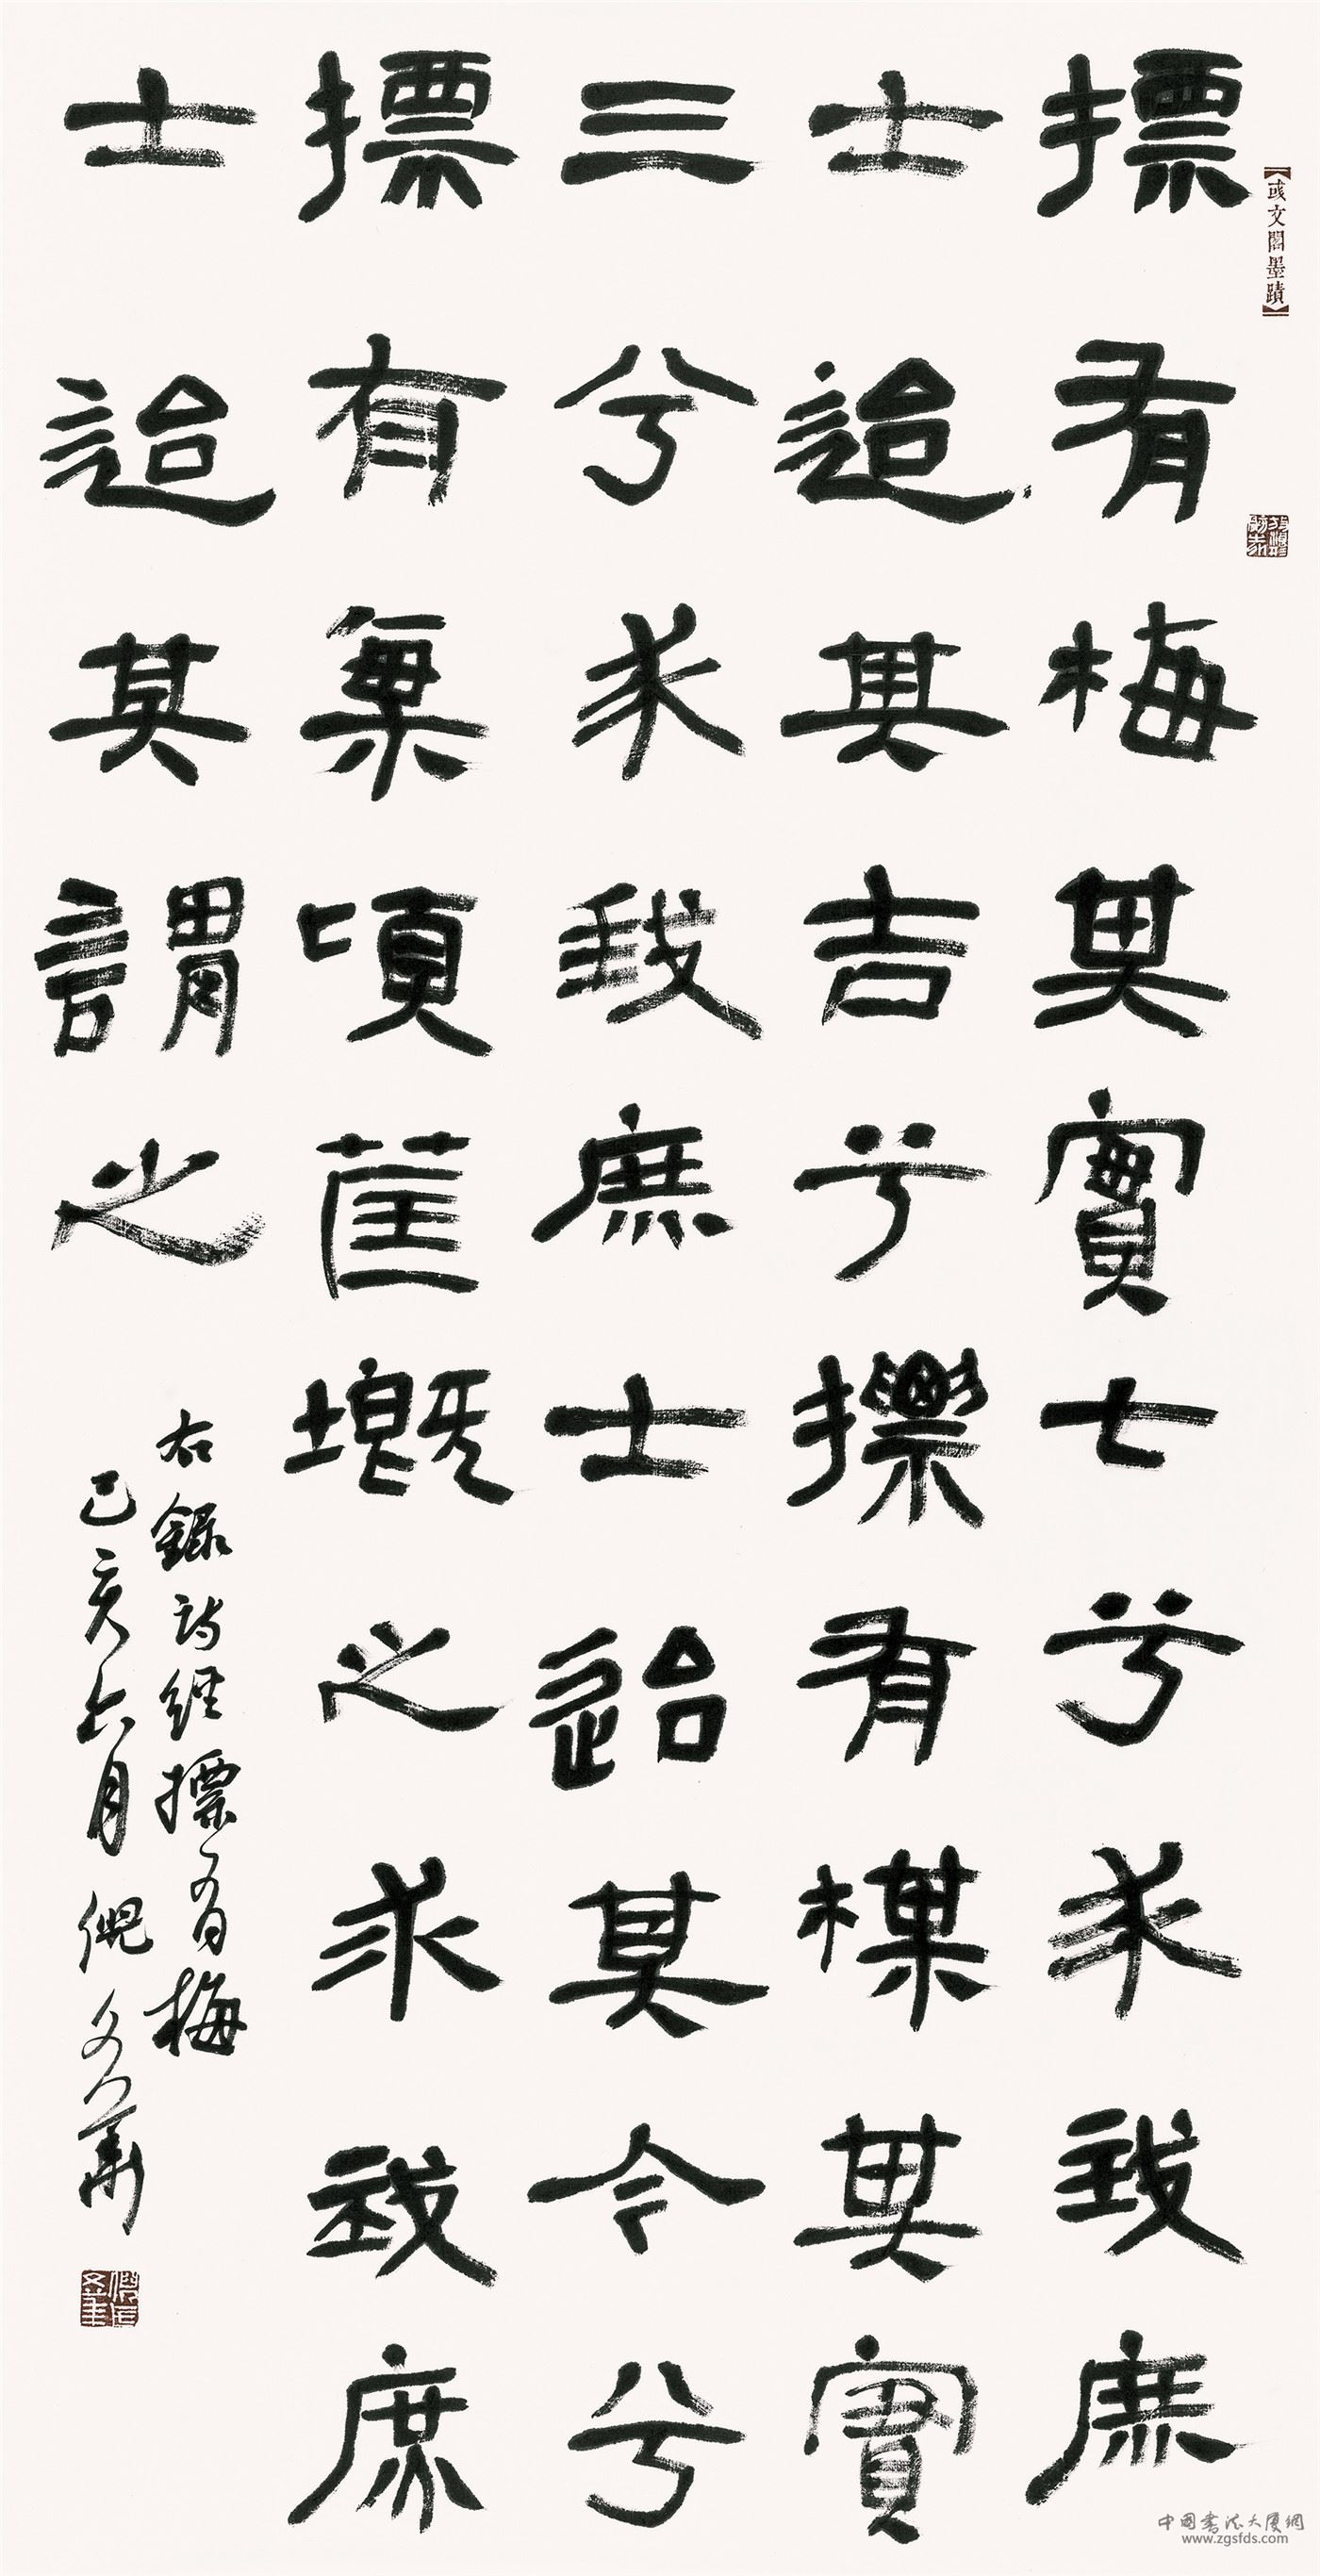 【彧文閣墨蹟】
摽有梅其實七兮求我庶
士迨其吉兮摽有楳其實
三兮求我庶士迨其今兮
摽有䋣頃莒塈之求我庶
士迨其謂之
右錄詩經摽有梅
己亥六月倪文華
中国书法大厦網
www.zgsfds.com